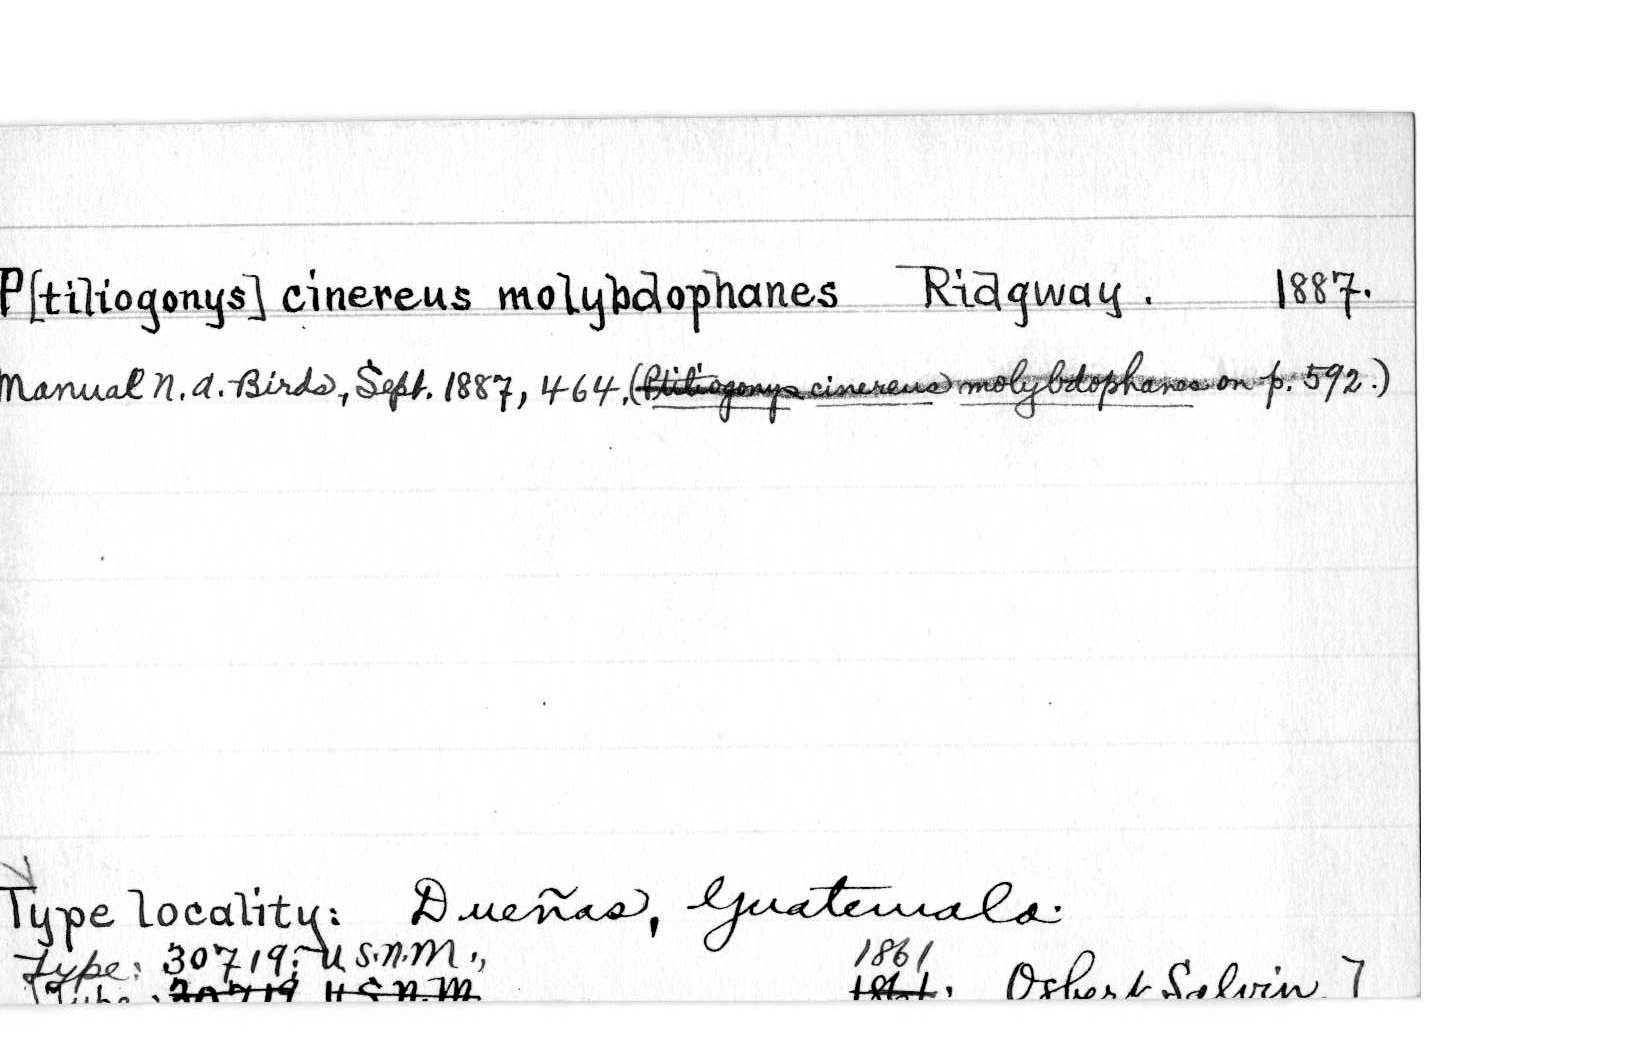 P[tiliogonys] cinereus molybdophanes Ridgway. 1887.
Manual N.A. Birds, Sept. 1887, 464, (Ptiliogonys cinereus molybdophanes on p. 592.)
Type locality: Dueñas, Guatemala.
Type: 30719, U.S.N.M., 1861
Type: 30719 U.S.N.M. 1861. Osbert Salvin